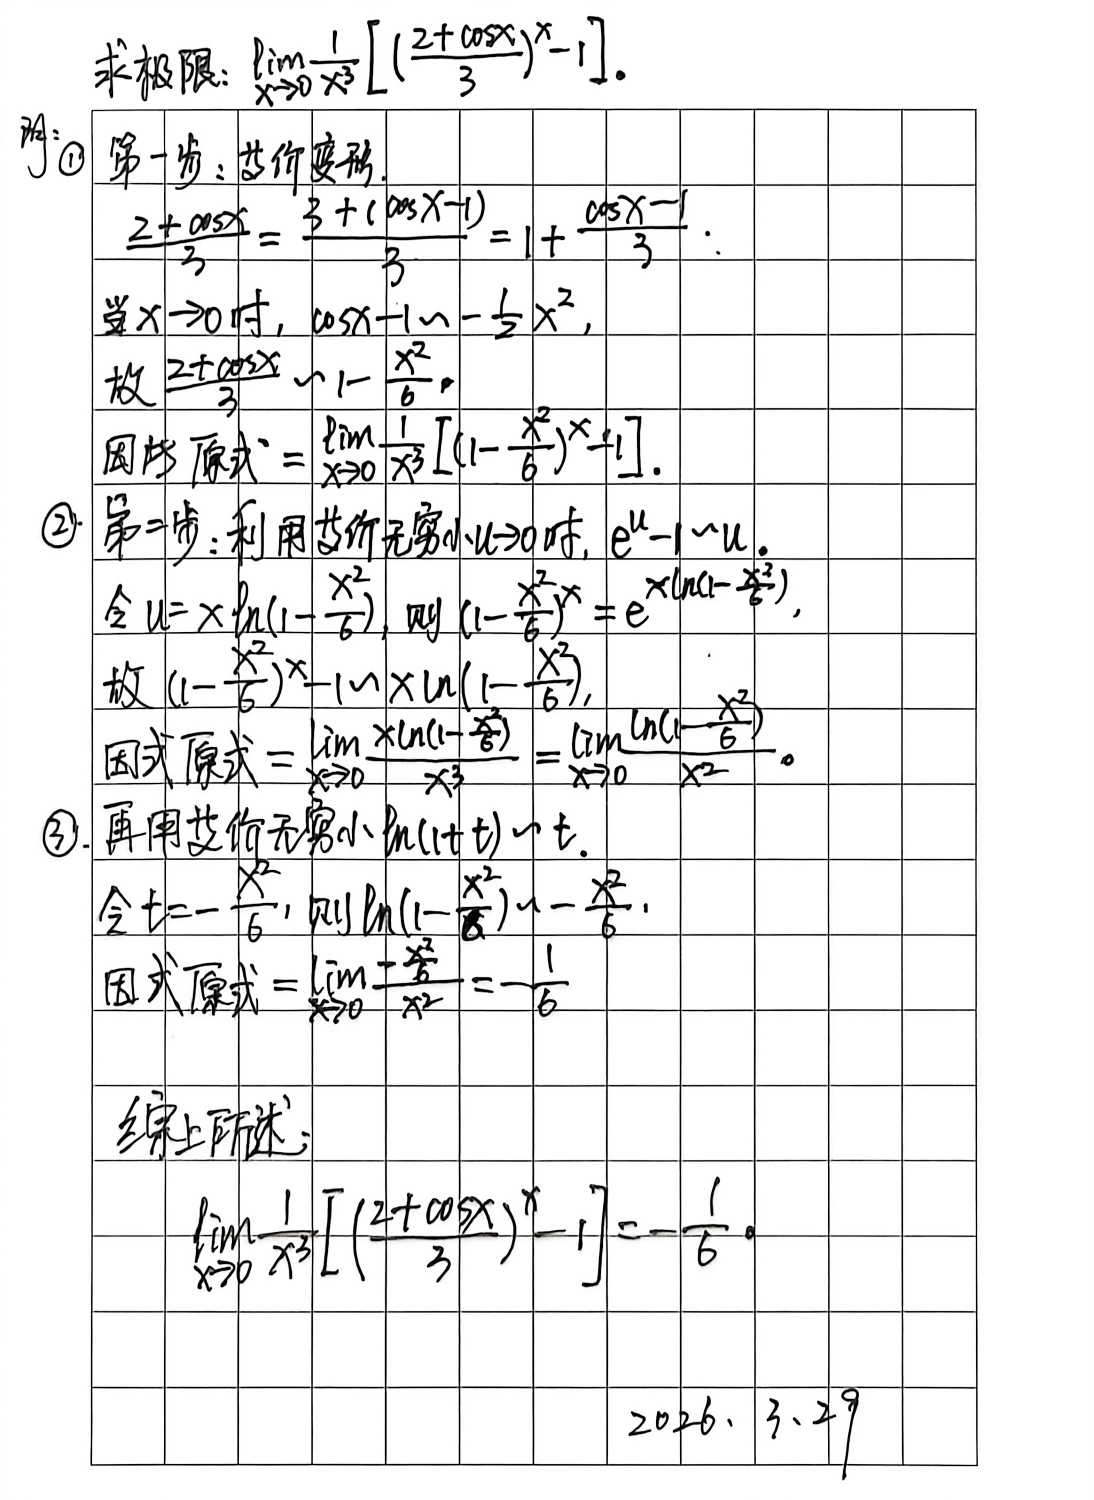 求极限: lim x→0 1/x³ [((2+cosx)/3)^x - 1].
① 第一步: 等价变形.
(2+cosx)/3 = (3+(cosx-1))/3 = 1 + (cosx-1)/3.
当x→0时, cosx-1 ~ -1/2 x²,
故 (2+cosx)/3 ~ 1 - x²/6.
因此 原式 = lim x→0 1/x³ [(1-x²/6)^x - 1].
②. 第二步: 利用等价无穷小u→0时, e^u - 1 ~ u.
令 u = x ln(1-x²/6), 则 (1-x²/6)^x = e^(x ln(1-x²/6)),
故 (1-x²/6)^x - 1 ~ x ln(1-x²/6),
因式原式 = lim x→0 (x ln(1-x²/6))/x³ = lim x→0 (ln(1-x²/6))/x².
③. 再用等价无穷小 ln(1+t) ~ t.
令 t = -x²/6, 则 ln(1-x²/6) ~ -x²/6.
因式原式 = lim x→0 (-x²/6)/x² = -1/6
综上所述:
lim x→0 1/x³ [((2+cosx)/3)^x - 1] = -1/6.
2026. 3. 29